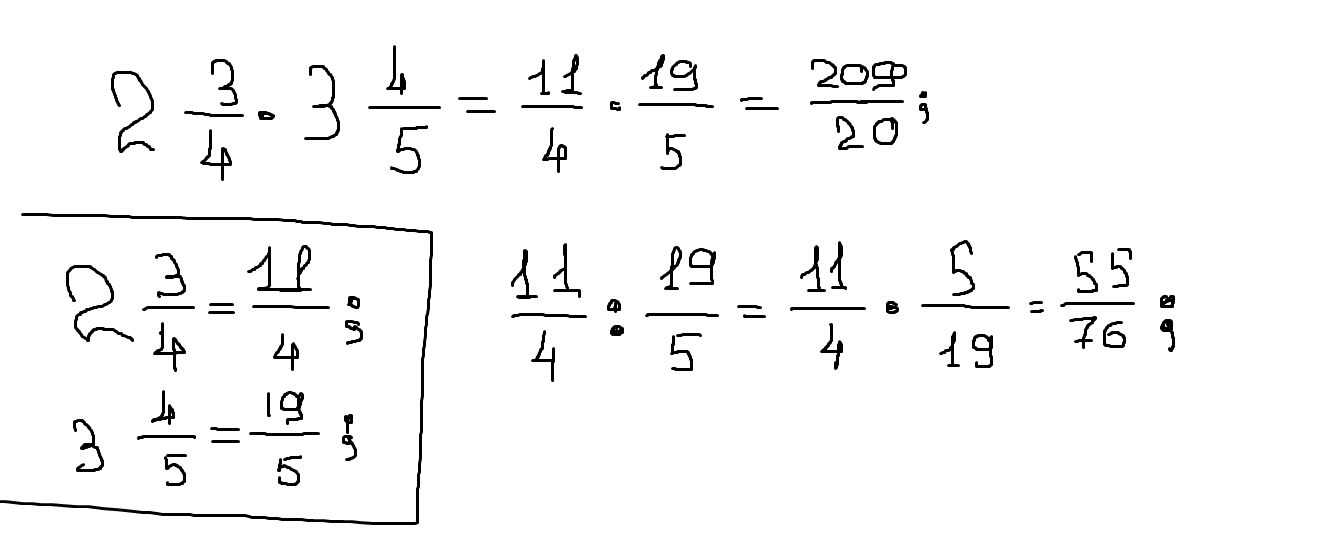 2 3/4 · 3 4/5 = 11/4 · 19/5 = 209/20 ;
2 3/4 = 11/4 ;
3 4/5 = 19/5 ;
11/4 : 19/5 = 11/4 · 5/19 = 55/76 ;